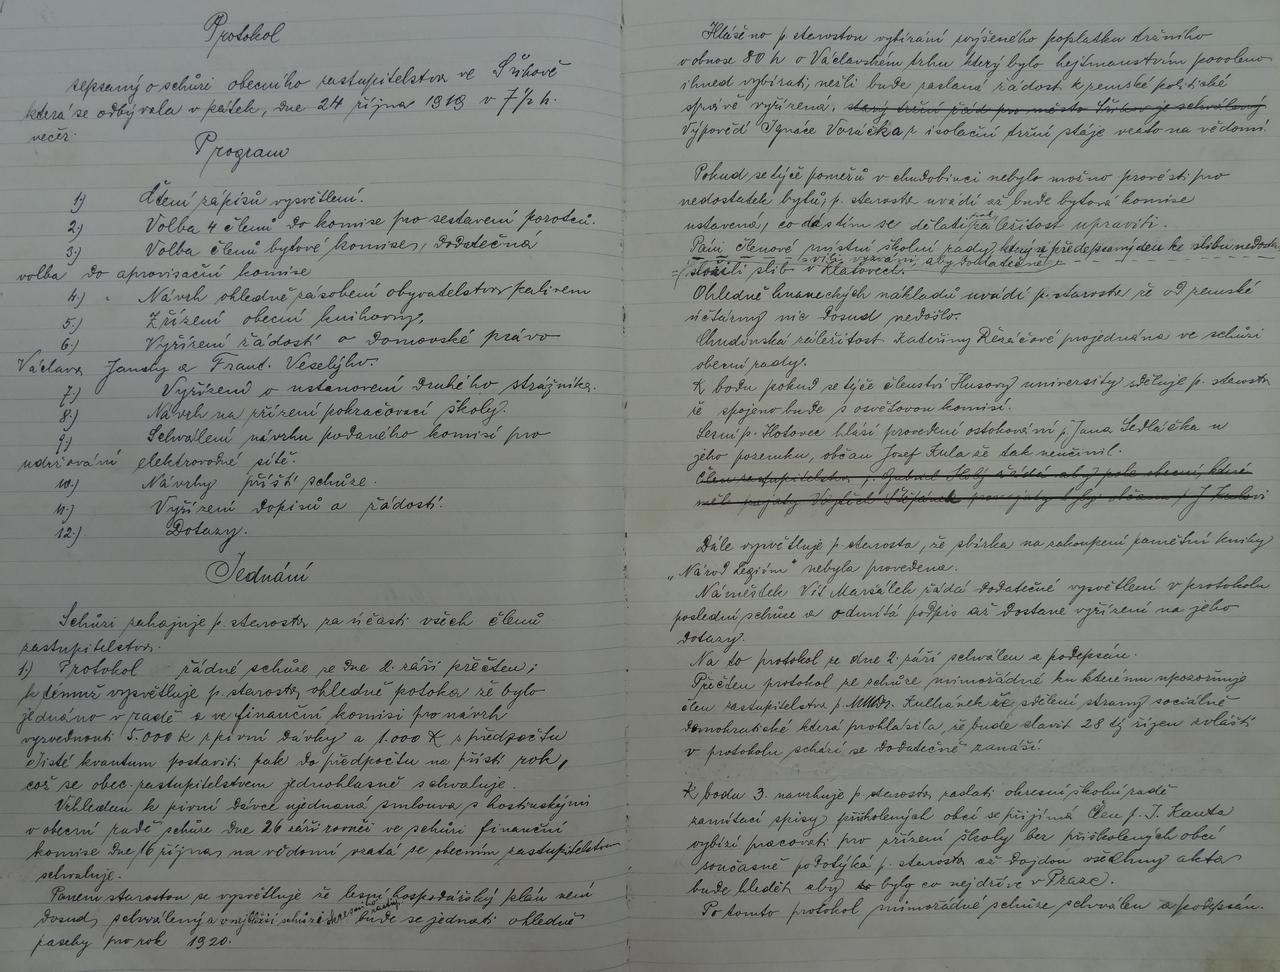 Protokol
sepsaný o schůzi obecního zastupitelstva ve Švihově
která se odbývala v pátek, dne 24 října 1919 v 7½ h.
večer.
Program
1.) Čtení zápisů vysvětlení.
2.) Volba 4 členů do komise pro sestavení porotců.
3.) Volba členů bytové komise, dodatečná
volba do aprovisační komise
4.) Návrh ohledně zásobení obyvatelstva palivem
5.) Zřízení obecní knihovny.
6.) Vyřízení žádostí o domovské právo
Václava Janský a Frant. Veselýho.
7.) Vyřízení o ustanovení druhého strážníka.
8.) Návrh na zřízení pokračovací školy.
9.) Schválení návrhu podaného komisí pro
udržování elektrovodné sítě.
10.) Návrhy příští schůze.
11.) Vyřízení dopisů a žádostí.
12.) Dotazy.
Jednání
Schůzi zahajuje p. starosta za účasti všech členů
zastupitelstva.
1.) Protokol řádné schůze ze dne 2. září přečten;
k čemuž vysvětluje p. starosta ohledně potoka že bylo
jednáno v radě a ve finanční komisi pro návrh
vyzvednouti 5.000 K z pivní dávky a 1.000 K z předpočtu
čisté kvantum postaviti pak do předpočtu na příští rok,
což se obec. zastupitelstvem jednohlasně schvaluje.
Vzhledem k pivní dávce ujednaná smlouva s hostinskými
v obecní radě schůze dne 26 září rovněž ve schůzi finanční
komise dne 16 října na vědomí vzatá se obecním zastupitelstvem
schvaluje.
Panem starostou se vysvětluje že lesní hospodářský plán není
dosud schválený a v nejbližší schůzi bude se jednati ohledně
paseky pro rok 1920.
Hlášeno p. starostou vybírání zvýšeného poplatku tržního
v obnose 80 h o Václavském trhu který bylo hejtmanstvím povoleno
ihned vybírati, nežli bude zaslaná žádost k zemské politické
správě vyřízena. starý tržní řád pro město Švihov je schválený
Výpověď Ignáce Voráčka z isolační tržní stáje vzato na vědomí.
Pokud se týče poměrů v chudobinci nebylo možno provésti pro
nedostatek bytů; p. starosta uvádí až bude bytová komise
ustavená, co dá s tím se dělati záležitost upraviti.
Páni členové místní školní rady který v předepsaný den ke slibu nedošli
složili slib v Klatovech.
Ohledně hranečkých nákladů uvádí p. starosta že od zemské
účtárny nic dosud nedošlo.
Chudinská záležitost Kateřiny Řezáčové projednána ve schůzi
obecní rady.
K bodu pokud se týče členství Husovy university sděluje p. starosta
že spojeno bude s osvětovou komisí.
Lesní p. Hotovec hlásí provedení ostokování p. Jana Sedláčka u
jeho pozemku, občan Josef Kula že tak neučinil.
Člen zastupitelstva p. Gabriel Holý žádá aby pole obecní, které
měl najatý Vojtěch Štěpánek
Dále vysvětluje p. starosta, že sbírka na zakoupení pamětní knihy
„Národ Legiím" nebyla provedena.
Náměstek Vít Maršálek žádá dodatečné vysvětlení v protokolu
poslední schůze a odmítá podpis až dostane vyřízení na jeho
dotazy.
Na to protokol ze dne 2. září schválen a podepsán.
Přečten protokol ze schůze mimořádné ku kterému upozorňuje
člen zastupitelstva p. MUDr. Kulhánek že sdělení strany sociálně
demokratické která prohlásila, že bude slavit 28 tý říjen zvláští
v protokolu schází se dodatečně zanáší.
K bodu 3. navrhuje p. starosta zaslati okresní školní radě
zamítací spisy přiškolených obcí se přijímá člen p. J. Kanta
vybízí pracovati pro zřízení školy bez přiškolených obcí
současně podotýká p. starosta až dojdou všechny akta
bude hledět aby bylo co nejdříve v Praze.
Po tomto protokol mimořádné schůze schválen a podepsán.